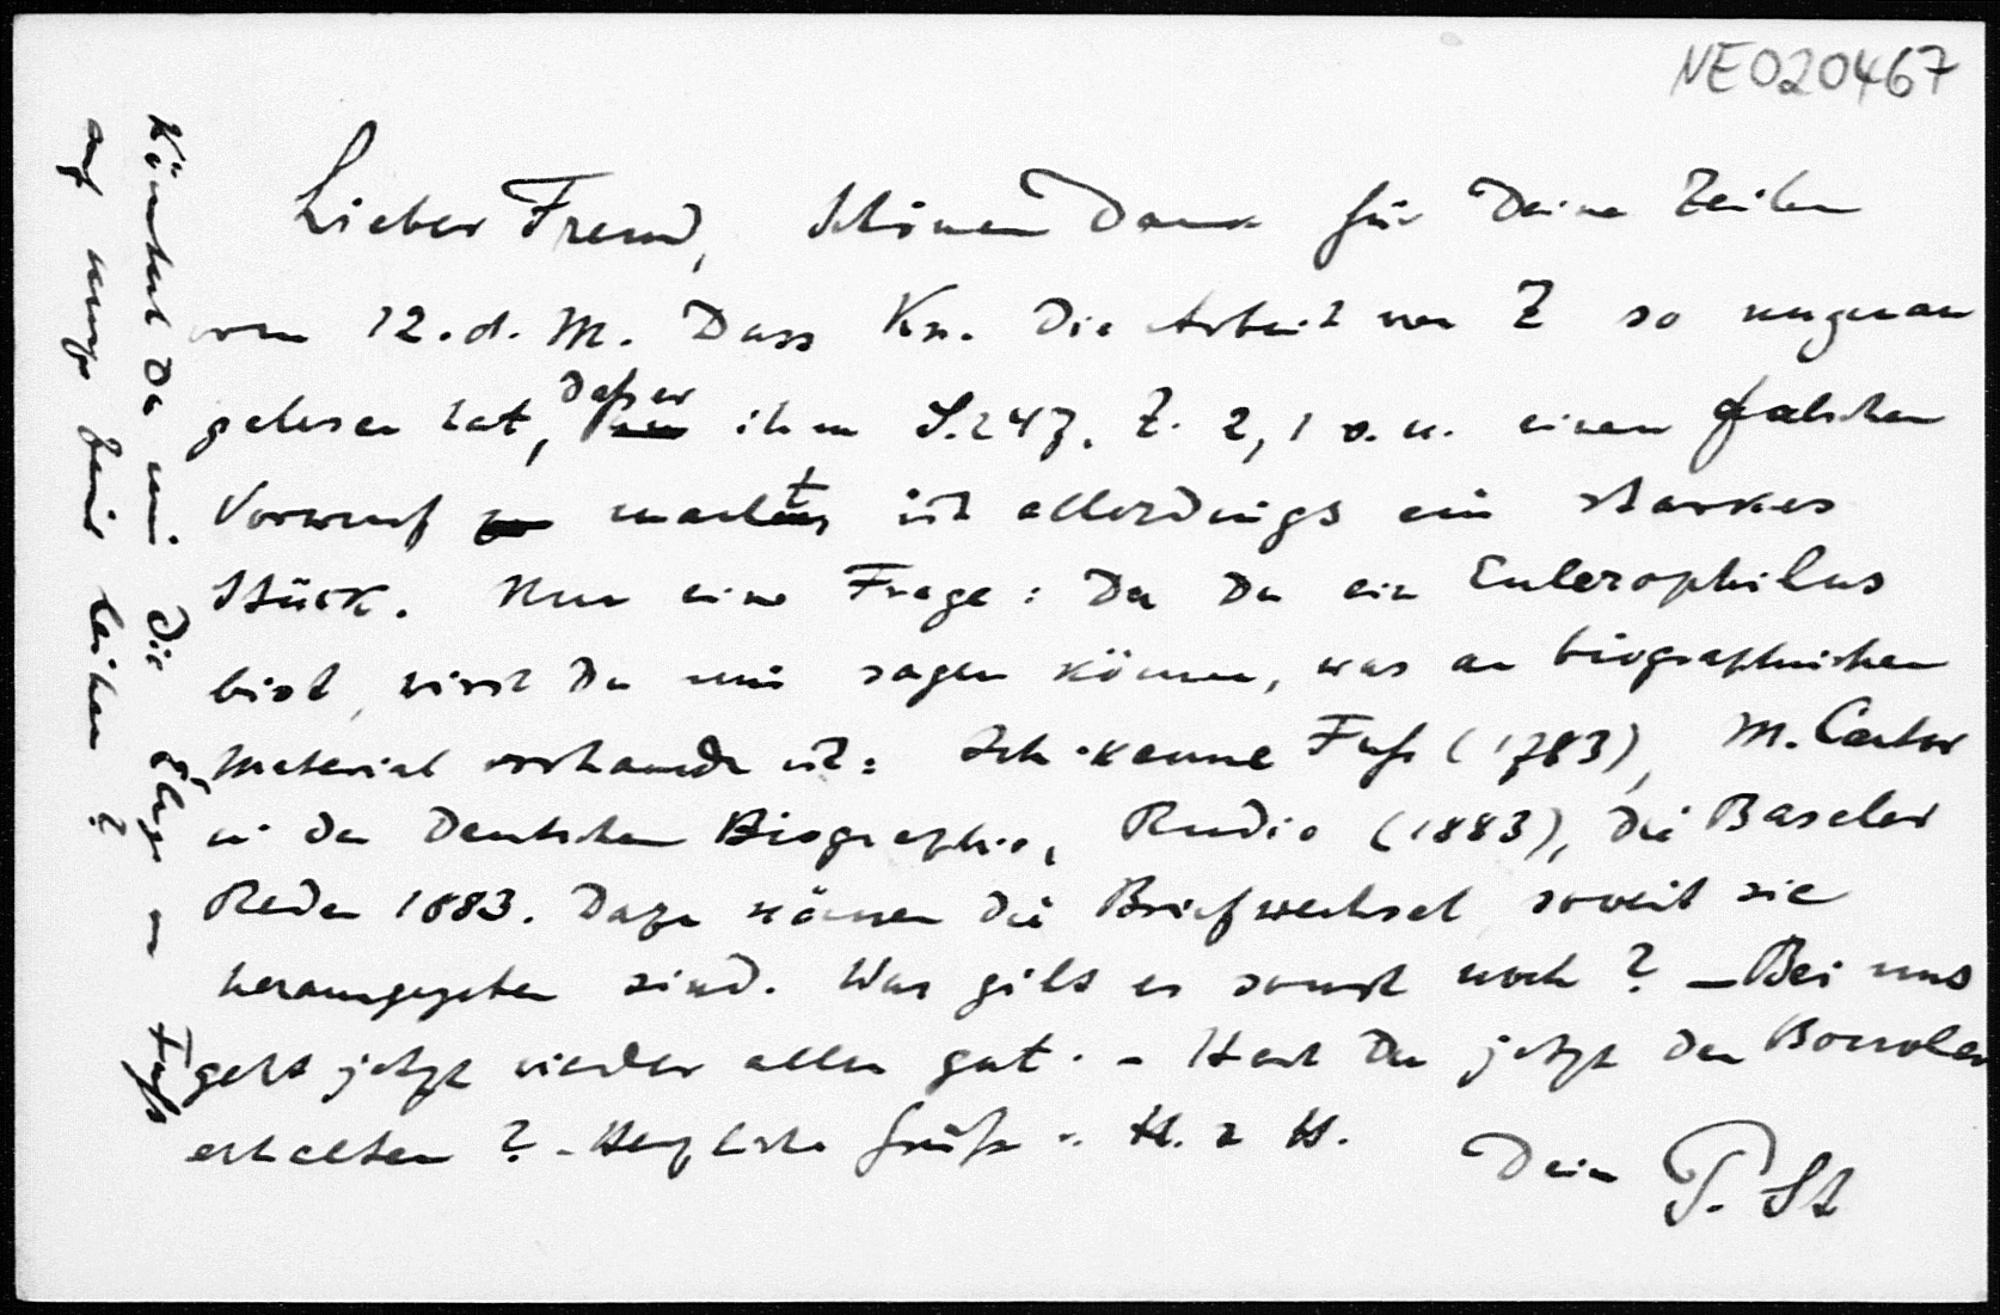 NE020467
Lieber Freund, Schönen Dank für Deine Zeilen
vom 12. d. M. Dass Kn. die Arbeit von Z so ungenau
gelesen hat, daß er ihm S. 247, Z. 2, 1 v. u. einen falschen
Vorwurf macht ist allerdings ein starkes
Stück. Nun eine Frage: Da Du ein Eulerophilus
bist, wirst Du mir sagen können, was an biographischem
Material vorhanden ist: Ich kenne Fuß (1783), M. Cantor
in der Deutschen Biographie, Rudio (1883), die Baseler
Reden 1883. Dazu kämen die Briefwechsel soweit sie
herausgegeben sind. Was gibt es sonst noch? – Bei uns
geht jetzt wieder alles gut. – Hast Du jetzt den
erhalten? – Herzliche Grüße v. H. z H.
Dein P. St
Könntest Du mir die von Fuß
auf einige Zeit leihen?